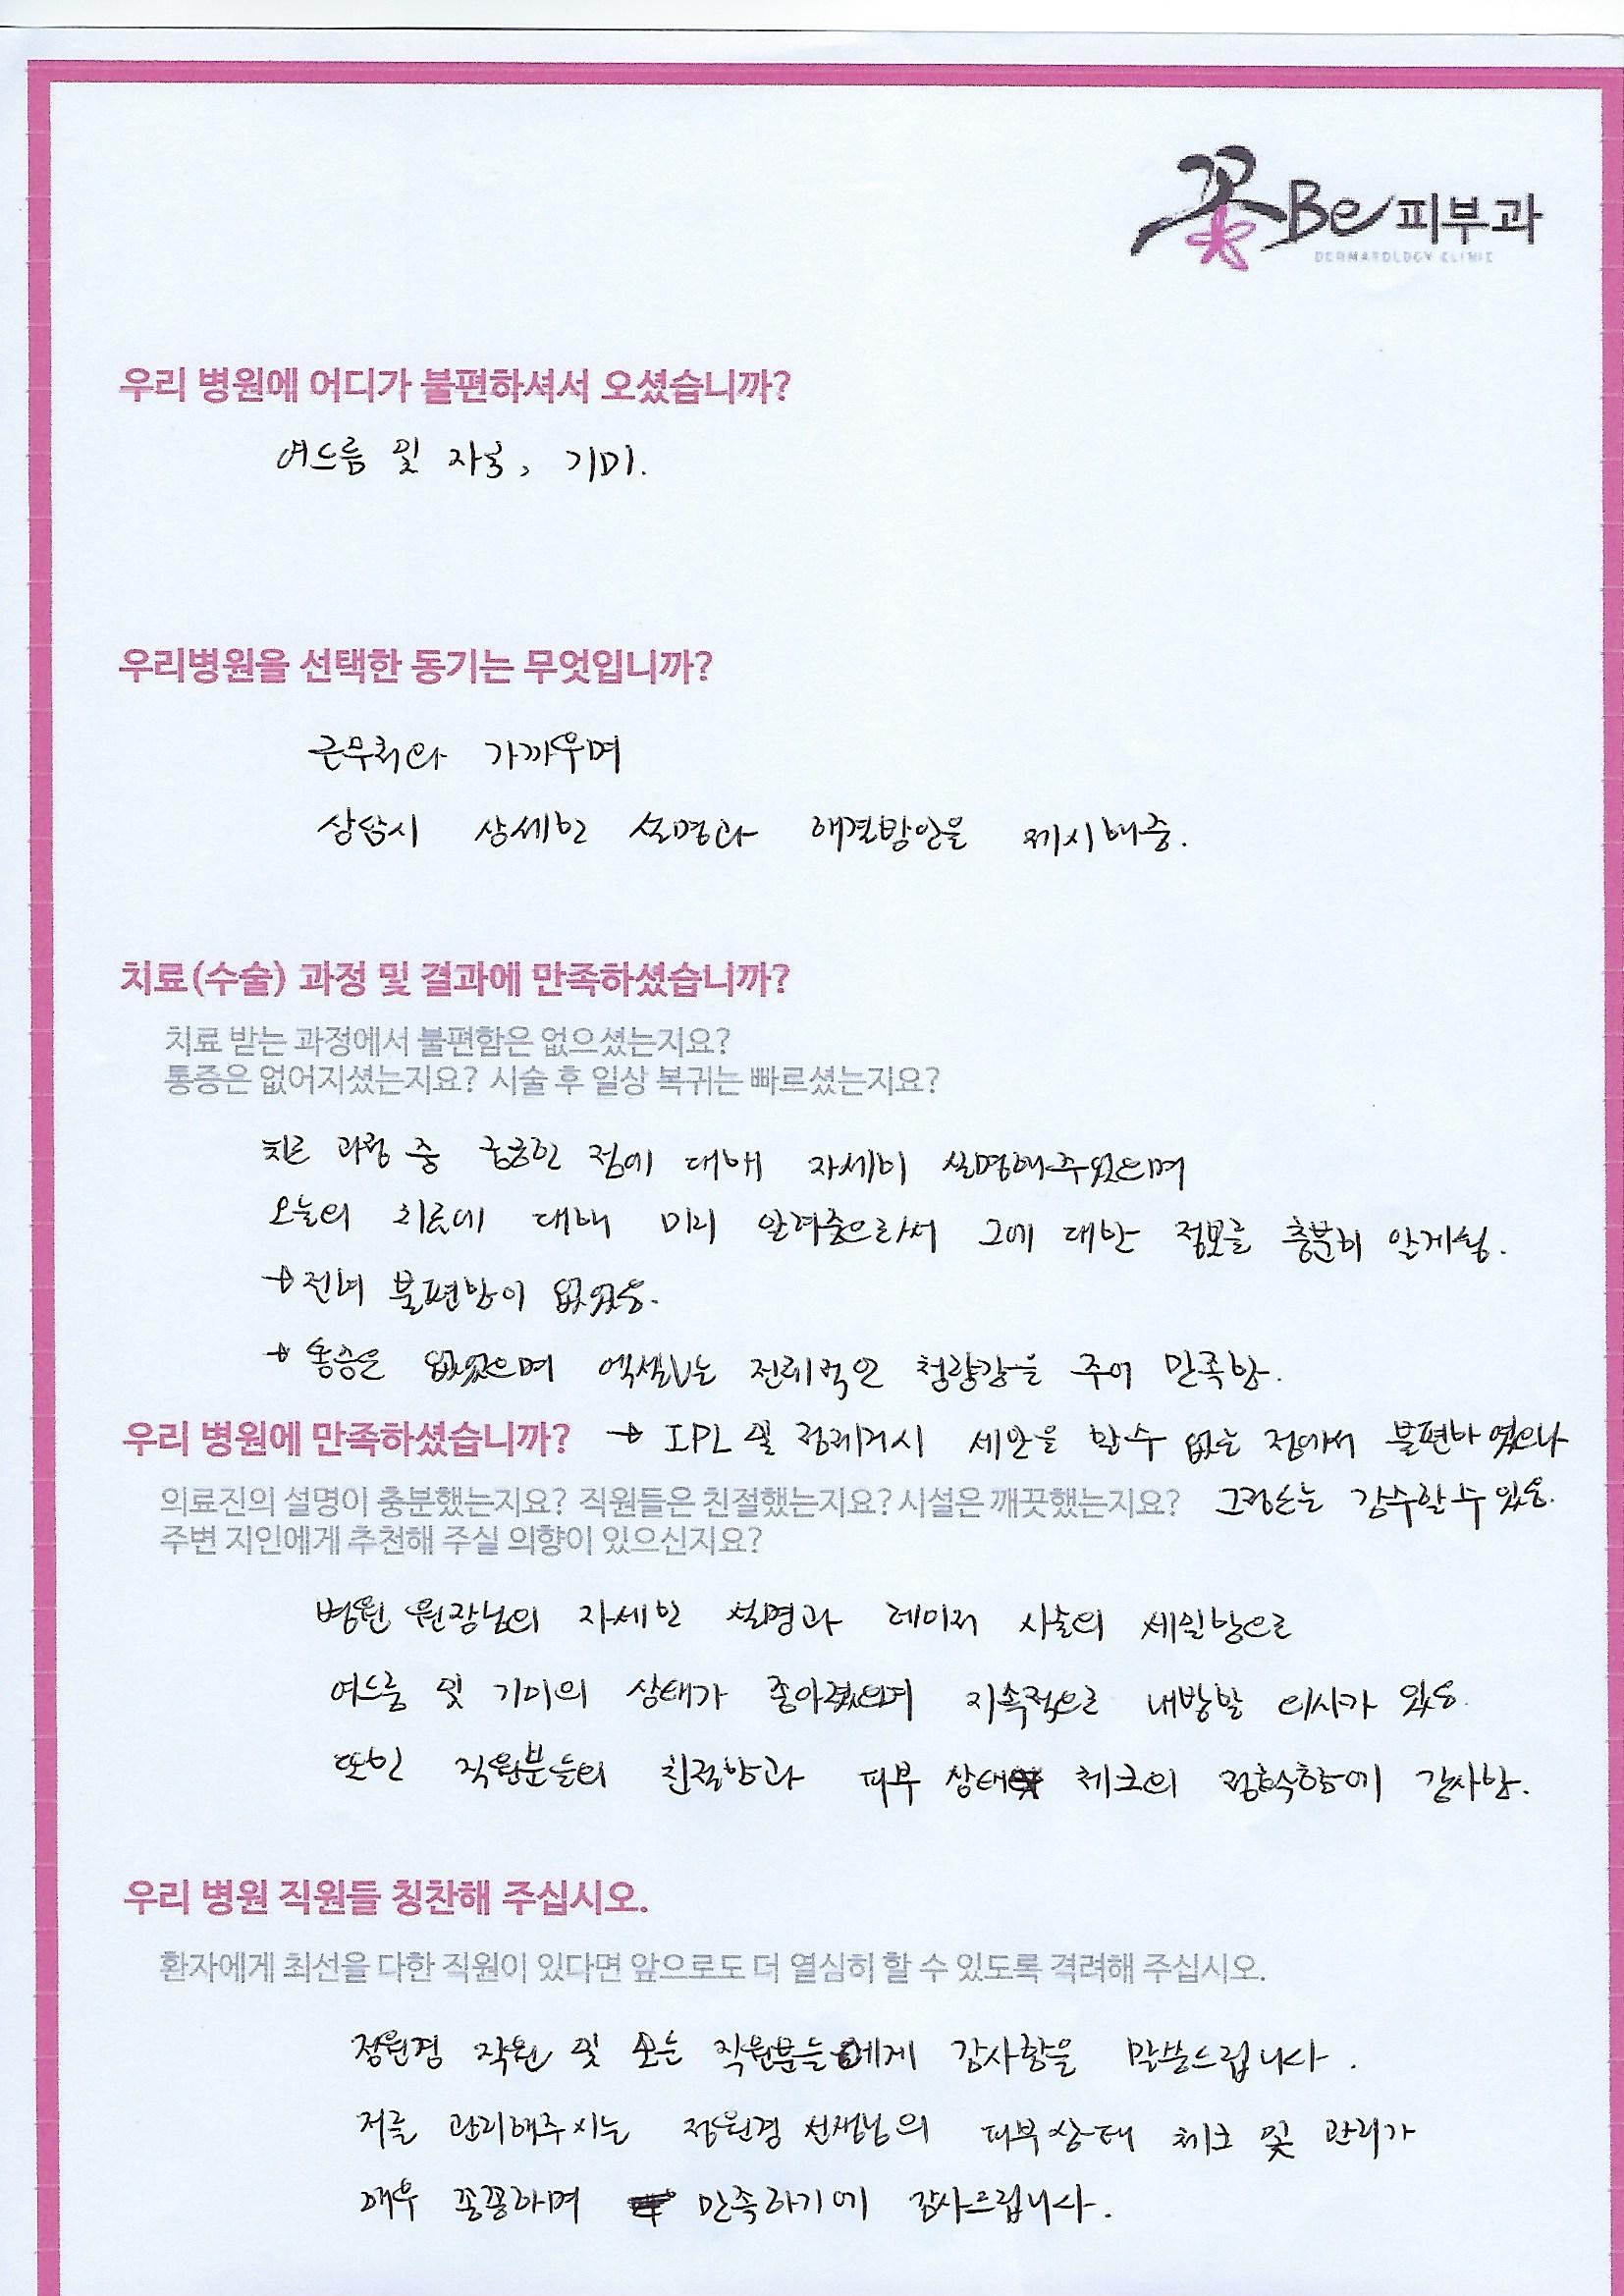 꽃Be피부과
DERMATOLOGY CLINIC
우리 병원에 어디가 불편하셔서 오셨습니까?
여드름 및 자국, 기미.
우리병원을 선택한 동기는 무엇입니까?
근무처와 가까우며
상담시 상세한 설명과 해결방안을 제시해줌.
치료(수술) 과정 및 결과에 만족하셨습니까?
치료 받는 과정에서 불편함은 없으셨는지요?
통증은 없어지셨는지요? 시술 후 일상 복귀는 빠르셨는지요?
치료 과정 중 궁금한 점에 대해 자세히 설명해주었으며
오늘의 치료에 대해 미리 알려줌으로서 그에 대한 정보를 충분히 알게됨.
→ 전혀 불편함이 없었음.
→ 통증은 없었으며 엑셀V는 전체적인 청량감을 주어 만족함.
우리 병원에 만족하셨습니까? → IPL 및 점제거시 세안을 할 수 없는 점에서 불편하였으나
의료진의 설명이 충분했는지요? 직원들은 친절했는지요? 시설은 깨끗했는지요? 그정도는 감수할 수 있음.
주변 지인에게 추천해 주실 의향이 있으신지요?
병원 원장님의 자세한 설명과 레이저 시술의 세밀함으로
여드름 및 기미의 상태가 좋아졌으며 지속적으로 내방할 의사가 있음.
또한 직원분들의 친절함과 피부 상태 체크의 정확함에 감사함.
우리 병원 직원들 칭찬해 주십시오.
환자에게 최선을 다한 직원이 있다면 앞으로도 더 열심히 할 수 있도록 격려해 주십시오.
정원경 직원 및 모든 직원분들에게 감사함을 말씀드립니다.
저를 관리해주시는 정원경 선생님의 피부상태 체크 및 관리가
매우 꼼꼼하며 만족하기에 감사드립니다.